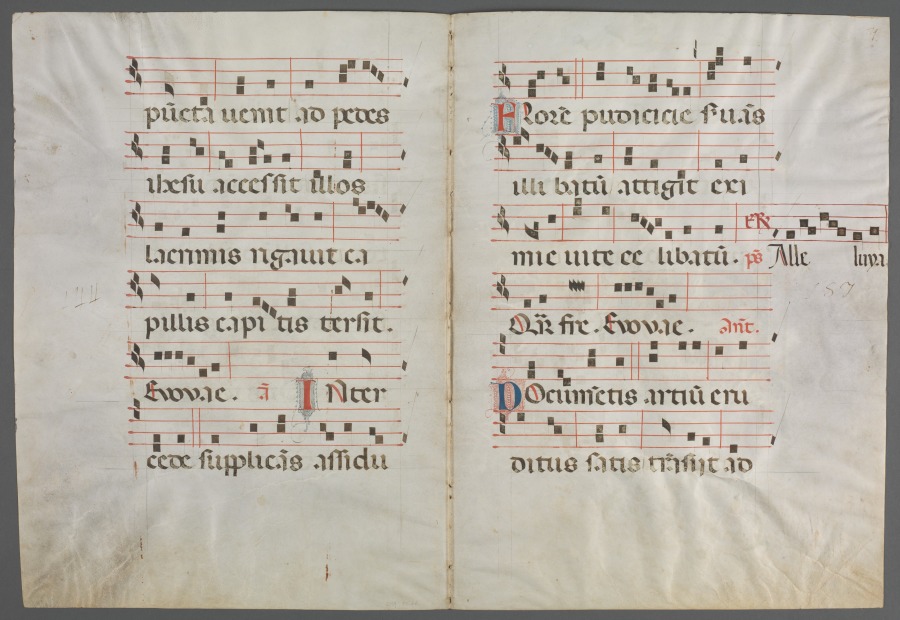 pūcta uenit ad pedes
ihesu accessit illos
lacrimis rigauit ca
pillis capitis tersit.
Euouae. a̅ INter
cede supplicās assidu
FLorē pudicicie suās
illibatū attigit exi
mie uite ce libatū. ps Alle luya
Euouae. Ant.
DOcumētis artiū eru
ditus satis trāsiit ad